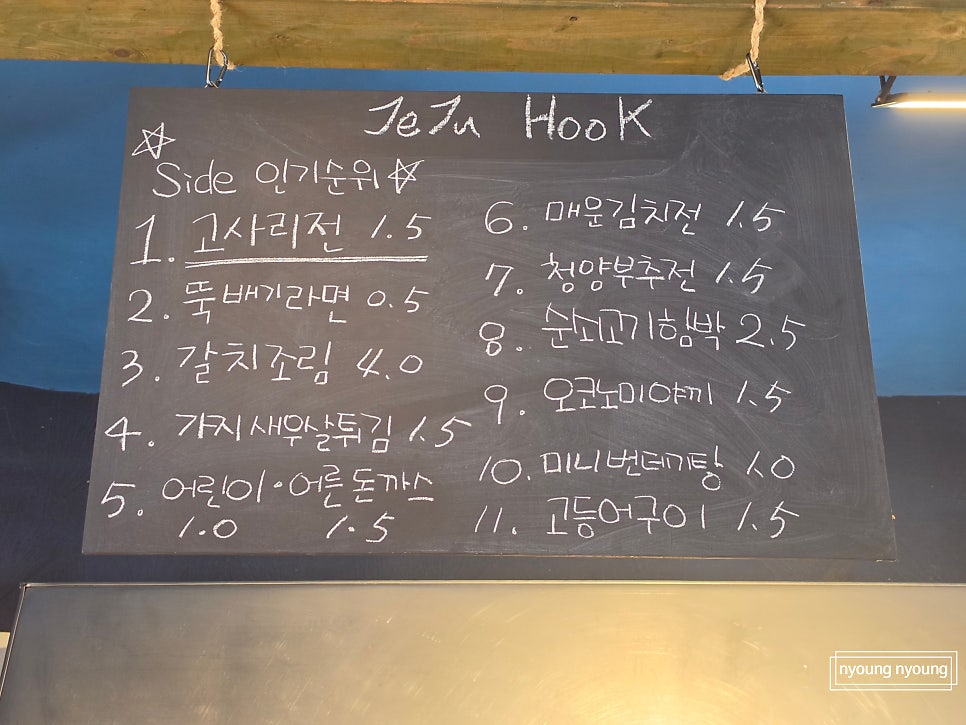 JeJu HooK
Side 인기순위
1. 고사리전 1.5
2. 뚝배기라면 0.5
3. 갈치조림 4.0
4. 가지새우살튀김 1.5
5. 어린이·어른돈까스
1.0 1.5
6. 매운김치전 1.5
7. 청양부추전 1.5
8. 순쇠고기함박 2.5
9. 오코노미야끼 1.5
10. 미니번데기탕 1.0
11. 고등어구이 1.5
nyoung nyoung